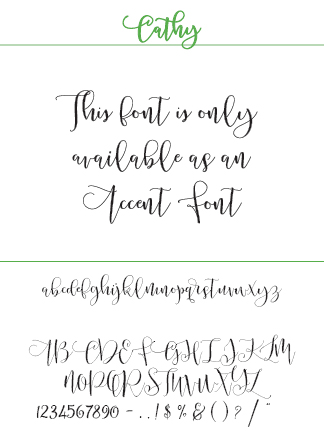 Cathy
This font is only
available as an
Accent Font
abcdefghijklmnopqrstuvwxyz
ABCDEFGHIJKLM
NOPQRSTUVWXYZ
1234567890 - . , ! $ % & ( ) ? / "